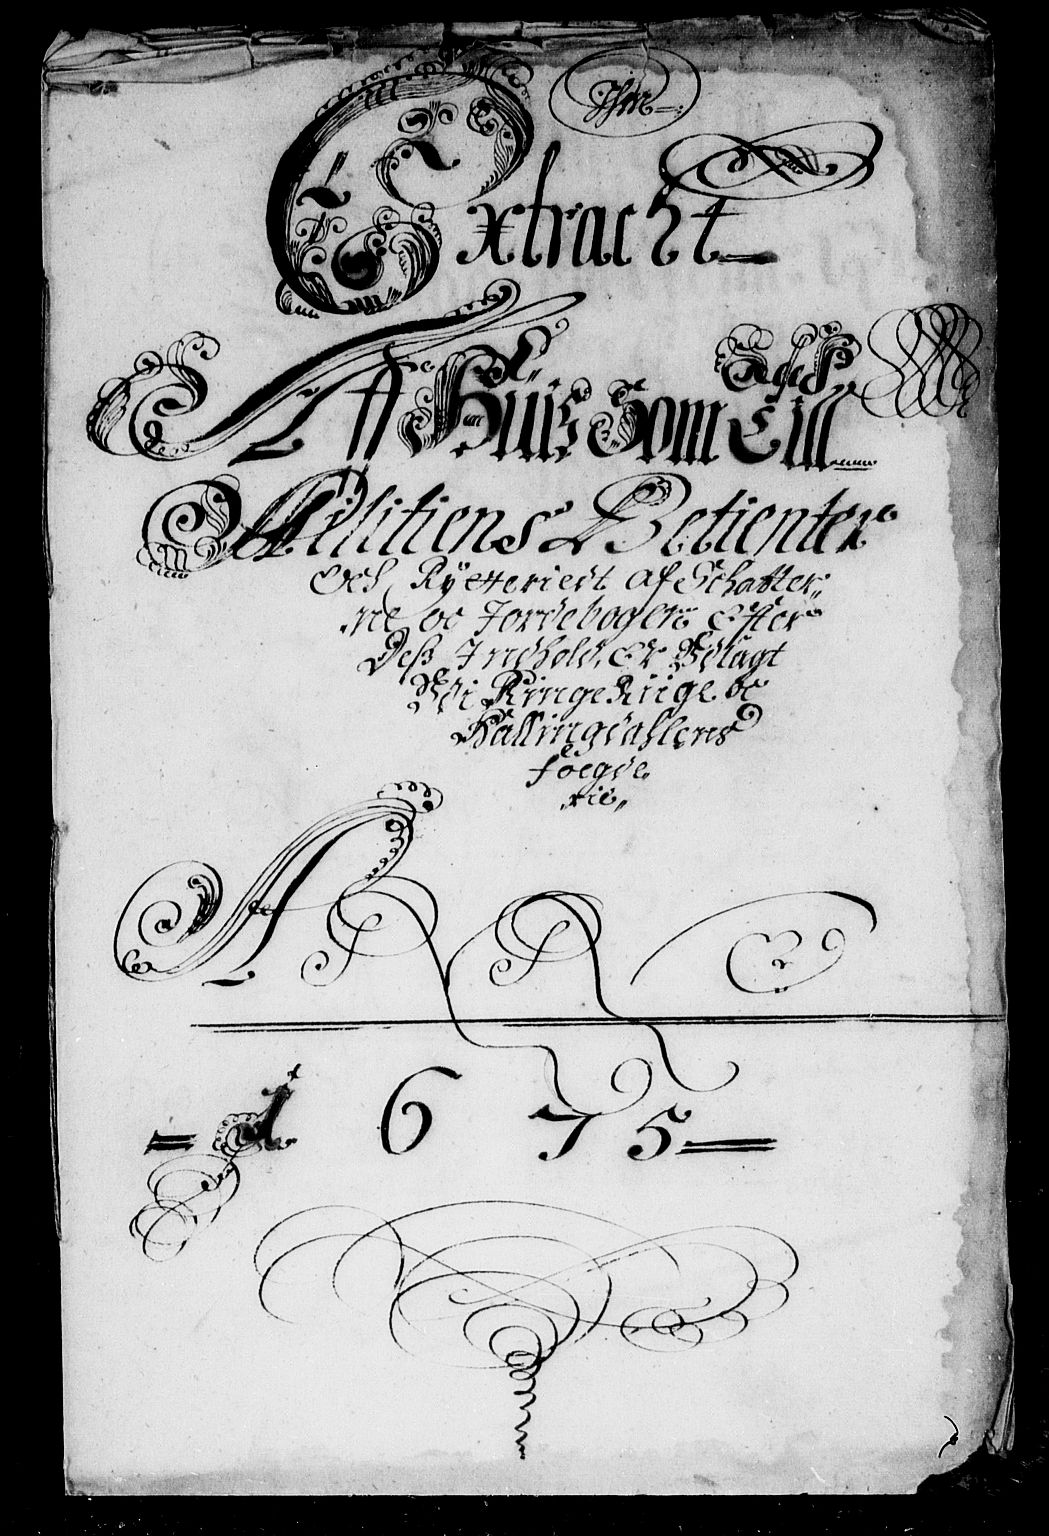 Extracht
Aff Huis Som Till
Militiens Betienter
Och Rÿtteriedt af Schatter,,
ne oc Jordebogen Efter
Deß Indhold, Er Udlagt
Udi RingeRiige oc
Hallingdahlens
foegde,
rie,,
A
1675